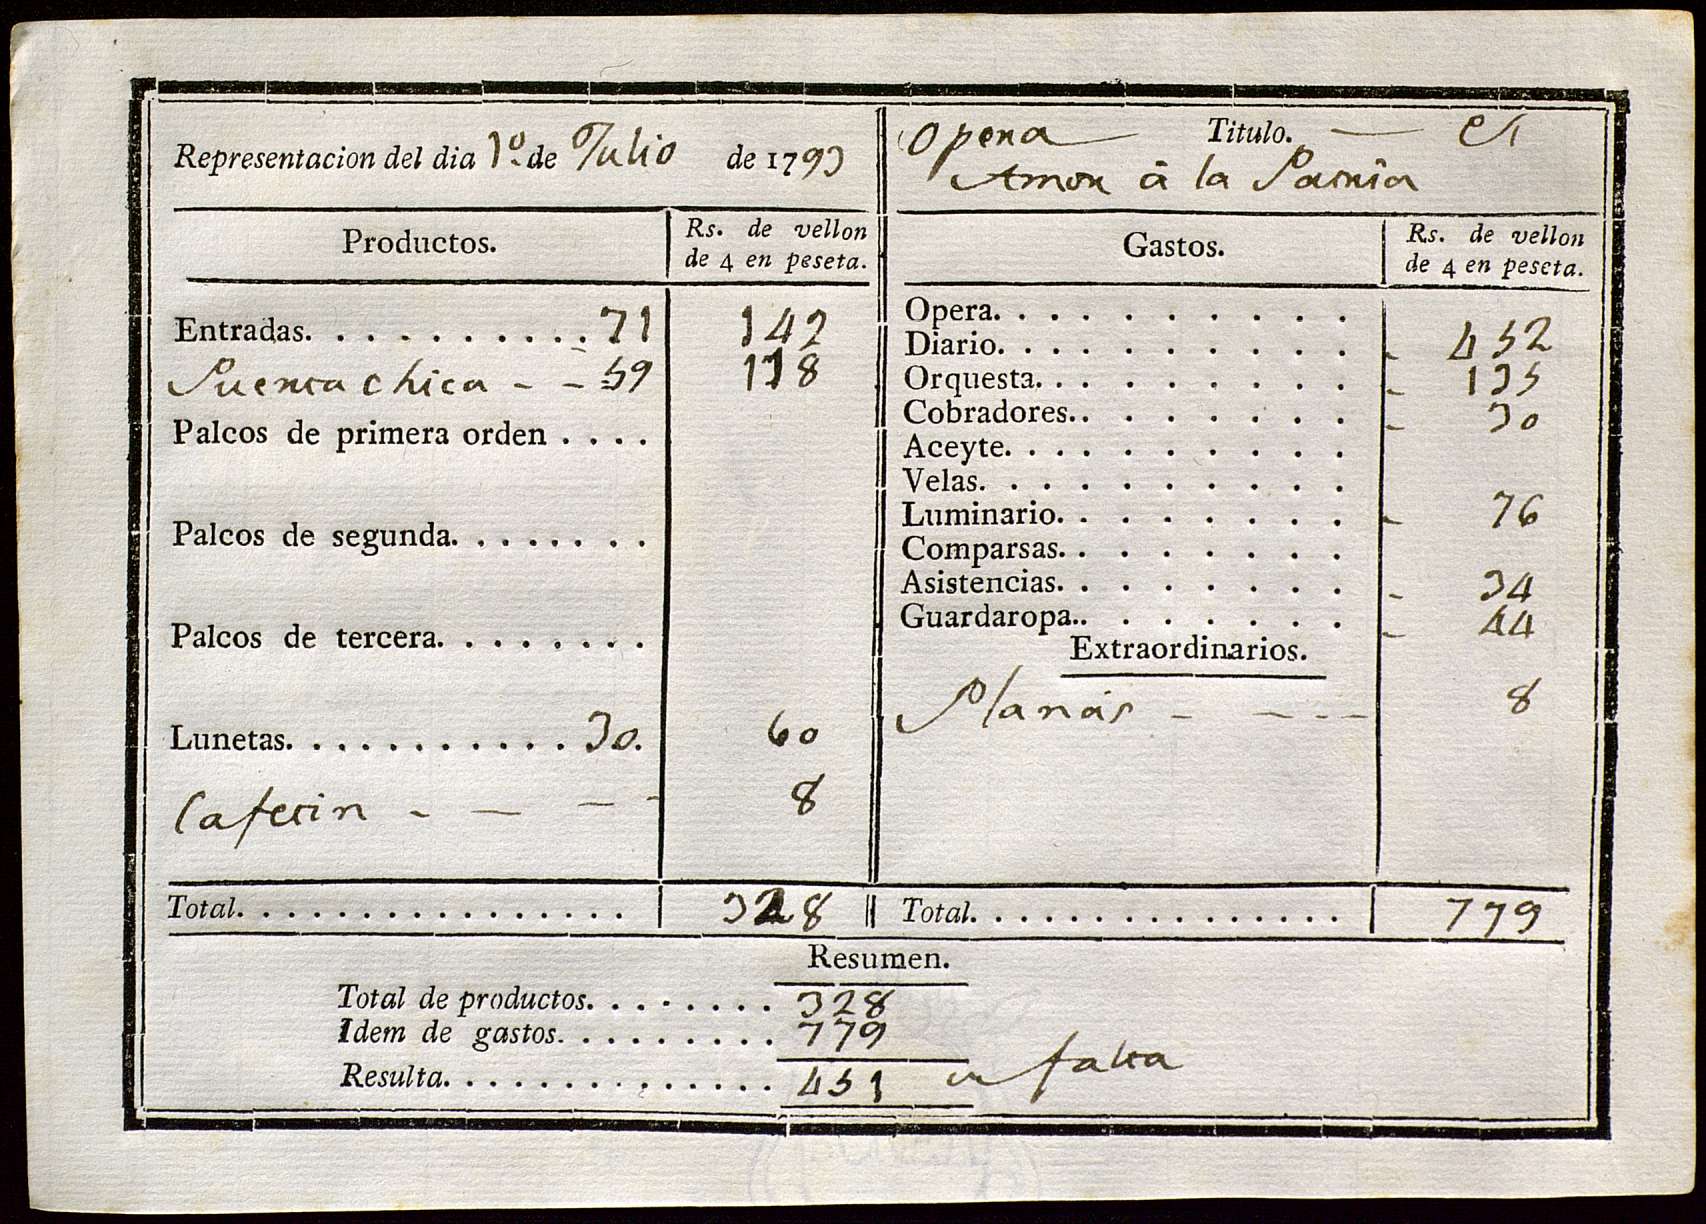 Representacion del dia 1º de Julio de 1793
Opera — Titulo. — El
Amor á la Patria
Productos. Rs. de vellon de 4 en peseta.
Gastos. Rs. de vellon de 4 en peseta.
Entradas. . . . . . . . . . 71 142
Puerta chica - - 59 118
Palcos de primera orden . . . .
Palcos de segunda. . . . . . . .
Palcos de tercera. . . . . . . .
Lunetas. . . . . . . . . . . . 30. 60
Cafetin - — - - 8
Total. . . . . . . . . . . . . . . . . 328
Opera. . . . . . . . . . .
Diario. . . . . . . . . . . - 452
Orquesta. . . . . . . . . - 135
Cobradores. . . . . . . . - 30
Aceyte. . . . . . . . . . .
Velas. . . . . . . . . . .
Luminario. . . . . . . . - 76
Comparsas. . . . . . . .
Asistencias. . . . . . . . - 34
Guardaropa.. . . . . . . - 44
Extraordinarios.
Planás - - - - 8
Total. . . . . . . . . . . . . . . . 779
Resumen.
Total de productos. . . . . . . . 328
Idem de gastos. . . . . . . . . . 779
Resulta. . . . . . . . . . . . . . . 451 en falta